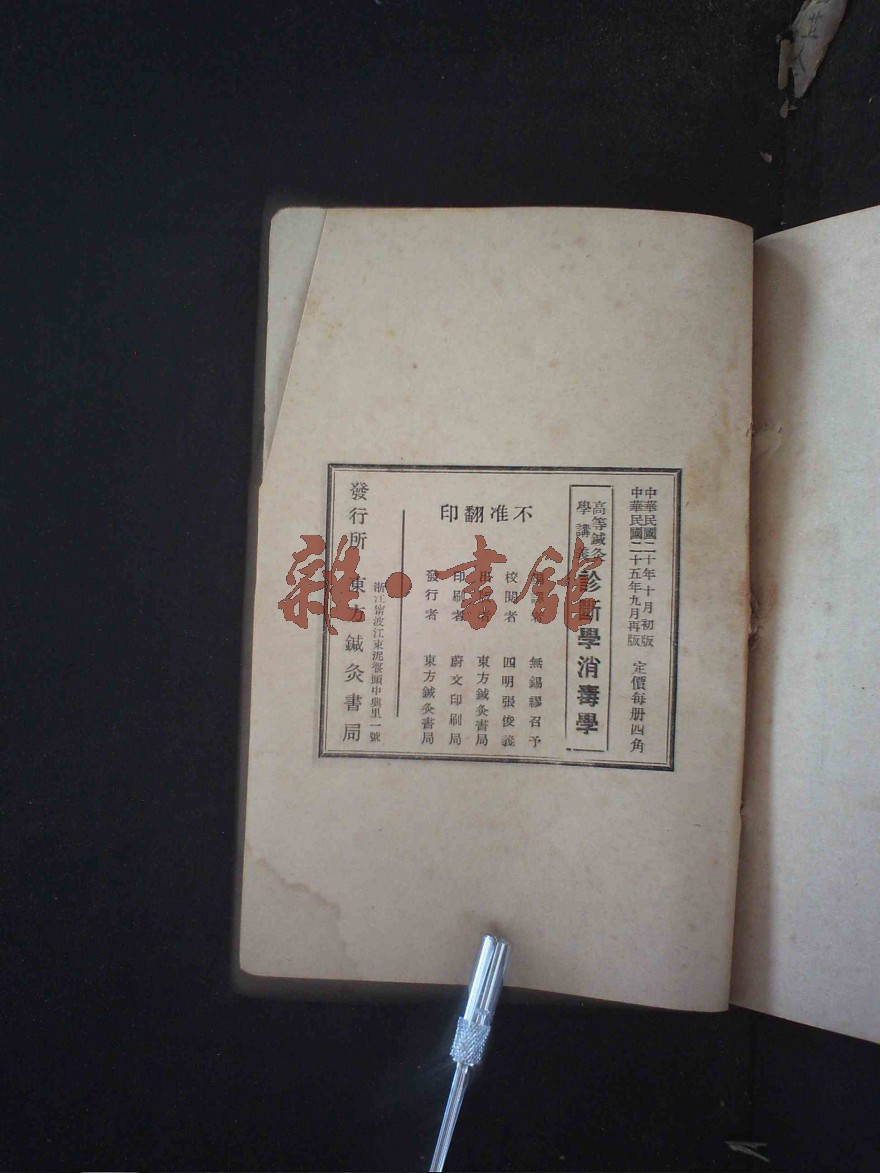 中華民國二十年十月初版
中華民國二十五年九月再版
定價每册四角
高等鍼灸
學講義
診斷學消毒學
不准翻印
無錫繆召予
校閱者 四明張俊義
出版者 東方鍼灸書局
印刷者 蔚文印刷局
發行者 東方鍼灸書局
浙江甯波江東泥堰頭中興里一號
發行所 東方鍼灸書局
雜·書館